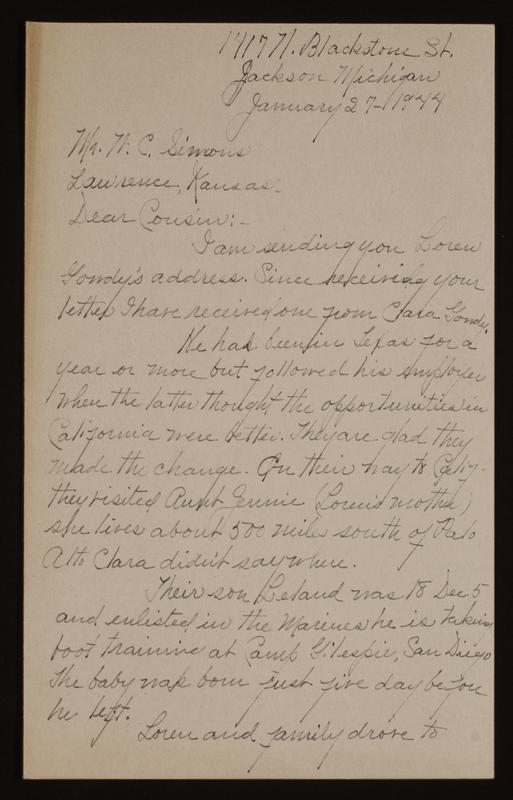 1117 N. Blackstone St.
Jackson Michigan
January 27-1944
Mr. W. C. Simons
Lawrence, Kansas-
Dear Cousin:-
I am sending you Loren
Gowdy's address. Since receiving your
letter I have received one from Clara Gowdy.
He had been in Texas for a
year or more but followed his employer
when the latter thought the opportunities in
California were better. They are glad they
made the change. On their way to Calif-
they visited Aunt Jennie (Loren's mother)
she lives about 500 miles south of Palo
Alto Clara didn't say where.
Their son Leland was 18 Dec 5
and enlisted in the Marines he is taking
boot training at Camp Gilespie, San Diego
The baby was born just five day before
he left.
Loren and family drove to